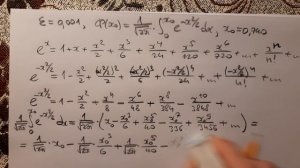 ε = 0,001, Φ(x₀) = 1/√2π ∫₀^x₀ e^(-x²/2) dx, x₀ = 0,740
e^x = 1 + x + x²/2 + x³/6 + x⁴/24 + x⁵/120 + x⁶/720 + ... + xⁿ/n! + ...
e^(-x²/2) = 1 - x²/2 + + + ... + (-x²/2)ⁿ/n! + ...
e^(-x²/2) = 1 - x²/2 + x⁴/8 - x⁶/48 + x⁸/384 - x¹⁰/3848 + ...
1/√2π ∫₀^x₀ e^(-x²/2) dx = 1/√2π (x₀ - x₀³/6 + x₀⁵/40 - x₀⁷/336 + + ...) =
= 1/√2π · x₀ - x₀³/6 + 1/√2π x₀⁵/40